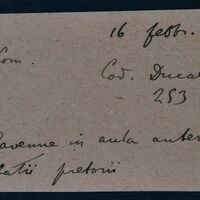 16 febb.
om.
Cod. Ducal
253
avenne in aula anter
latii pretorii